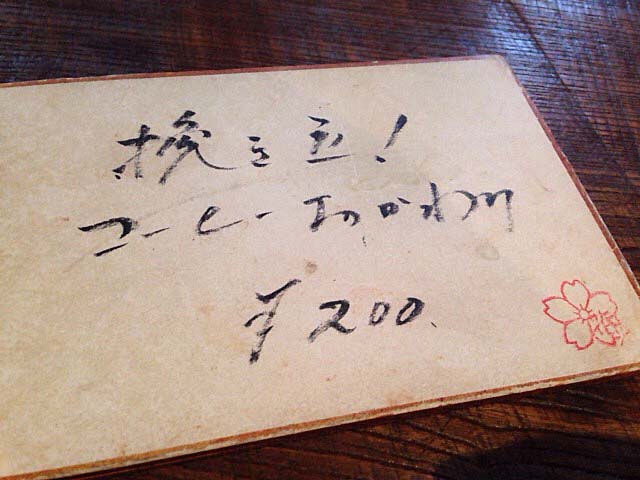 挽き立!
コーヒーおかわり
¥200.